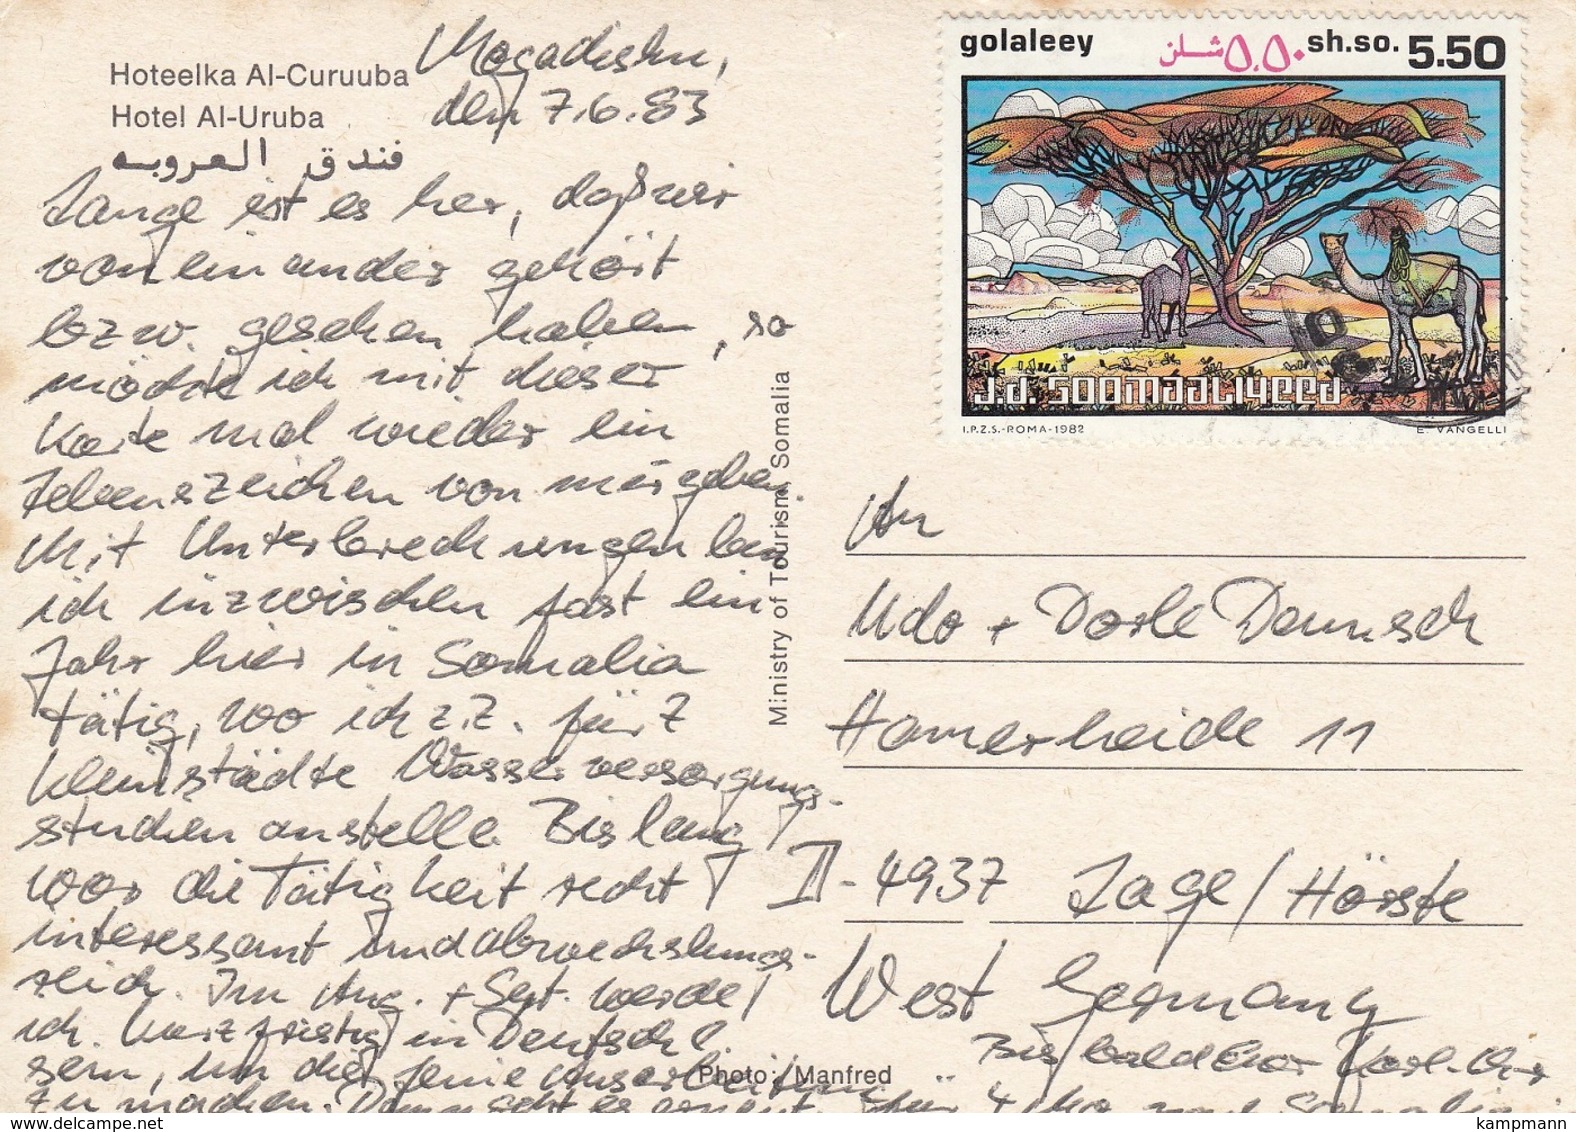 Hoteelka Al-Curuuba
Hotel Al-Uruba
فندق العروبه
Mogadischu,
den 7.6.83
Lange ist es her, daß wir
voneinander gehört
bzw. gesehen haben, so
möchte ich mit dieser
Karte mal wieder ein
Lebenszeichen von mir geben.
Mit Unterbrechungen bin
ich inzwischen fast ein
Jahr hier in Somalia
tätig, wo ich z.Z. für 7
Kleinstädte Wasserversorgungs-
studien anstelle. Bislang
war die Tätigkeit recht
interessant und abwechslungs-
reich. Im Aug. + Sept. werde
ich kurzfristig in Deutschl.
sein, um die
zu machen. Dann geht es erneut für 4 Mo nach Somalia
Bis bald Euer Karl-
Ministry of Tourism Somalia
Photo: Manfred
golaleey ٥,٥٠ شلن sh.so. 5.50
J.D. SOOMAALIYEED
I.P.Z.S.-ROMA-1982 E. VANGELLI
An
Udo + Dorle Dammsch
Hamerheide 11
D-4937 Lage/Hörste
West Germany
www.delcampe.net
kampmann